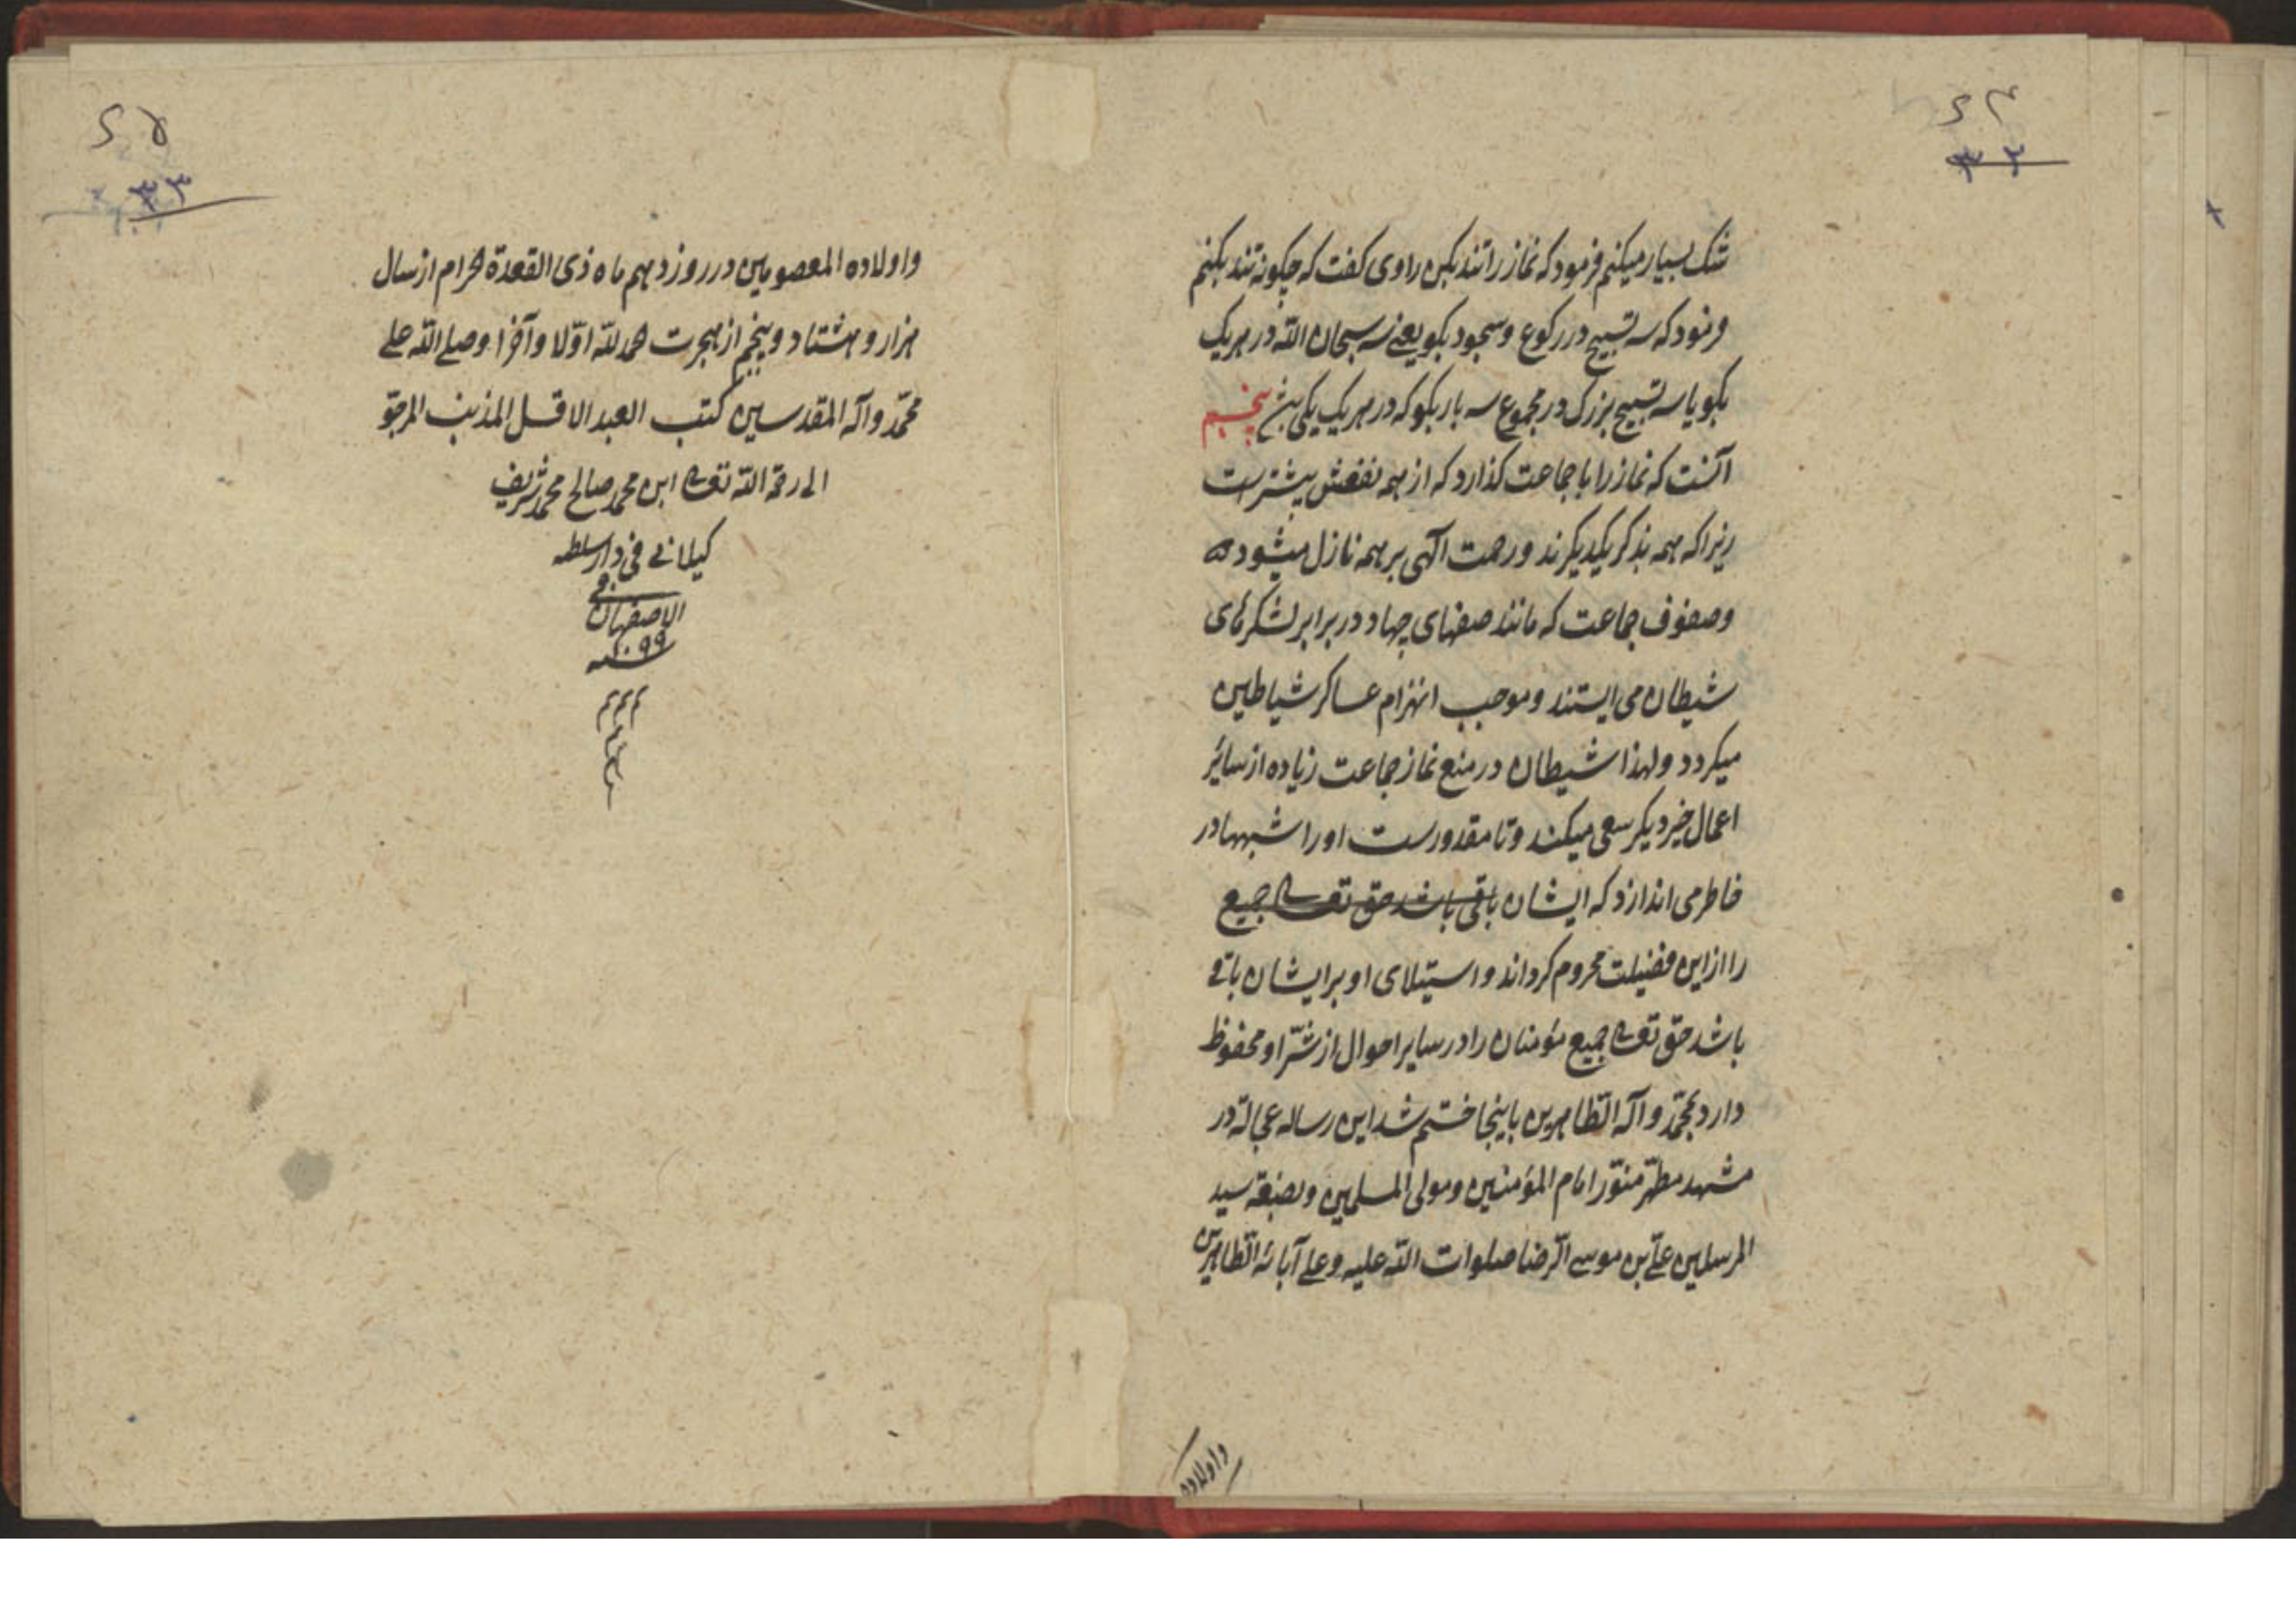 شک بسیار میکنم فرمود که نماز را تند بکن راوی کفت که چکونه تند بکنم
فرمود که سه تسبیح در رکوع و سجود بکو یعنی سه سبحان الله در هر یک
بکو یا سه تسبیح بزرک در مجموع سه بار بکو که در هر یک یکی پنجم
آنست که نماز را با جماعت کذارد که از همه نفعش بیشتر است
زیرا که همه بذکر یکدیکرند و رحمت الهی بر همه نازل میشود
و صفوف جماعت که مانند صفهای جهاد در برابر لشکرهای
شیطان می ایستند و موجب انهزام عساکر شیاطین
میکردد و لهذا شیطان در منع نماز جماعت زیاده از سائر
اعمال خیر دیکر سعی میکند و تا مقدورست او را شبهها در
خاطر می اندازد که ایشان باقی باشد حق تعالی جمیع
را از این فضیلت محروم کرداند و استیلای او بر ایشان باقی
باشد حق تعالی جمیع مؤمنان را در سایر احوال از شرّ او محفوظ
دارد بمحمّد و آله الطاهرین باینجا ختم شد این رساله عجالة در
مشهد مطهّر منوّر امام المؤمنین و مولی المسلمین و بضعة سید
المرسلین علیّ بن موسی الرّضا صلوات الله علیه و علی آبائه الطاهرین
واولاده
۲۵
۳۳
واولاده المعصومین در روز دهم ماه ذی القعدة الحرام از سال
هزار و هشتاد و پنجم از هجرت حمد لله اوّلا و آخرا و صلی الله علی
محمّد و آله المقدسین کتب العبد الاقل المذنب المرجوّ
الی رحمة الله تعالی ابن محمد صالح محمد شریف
کیلانی فی دار سلطه
الاصفهان
سنه ۱۰۹۹